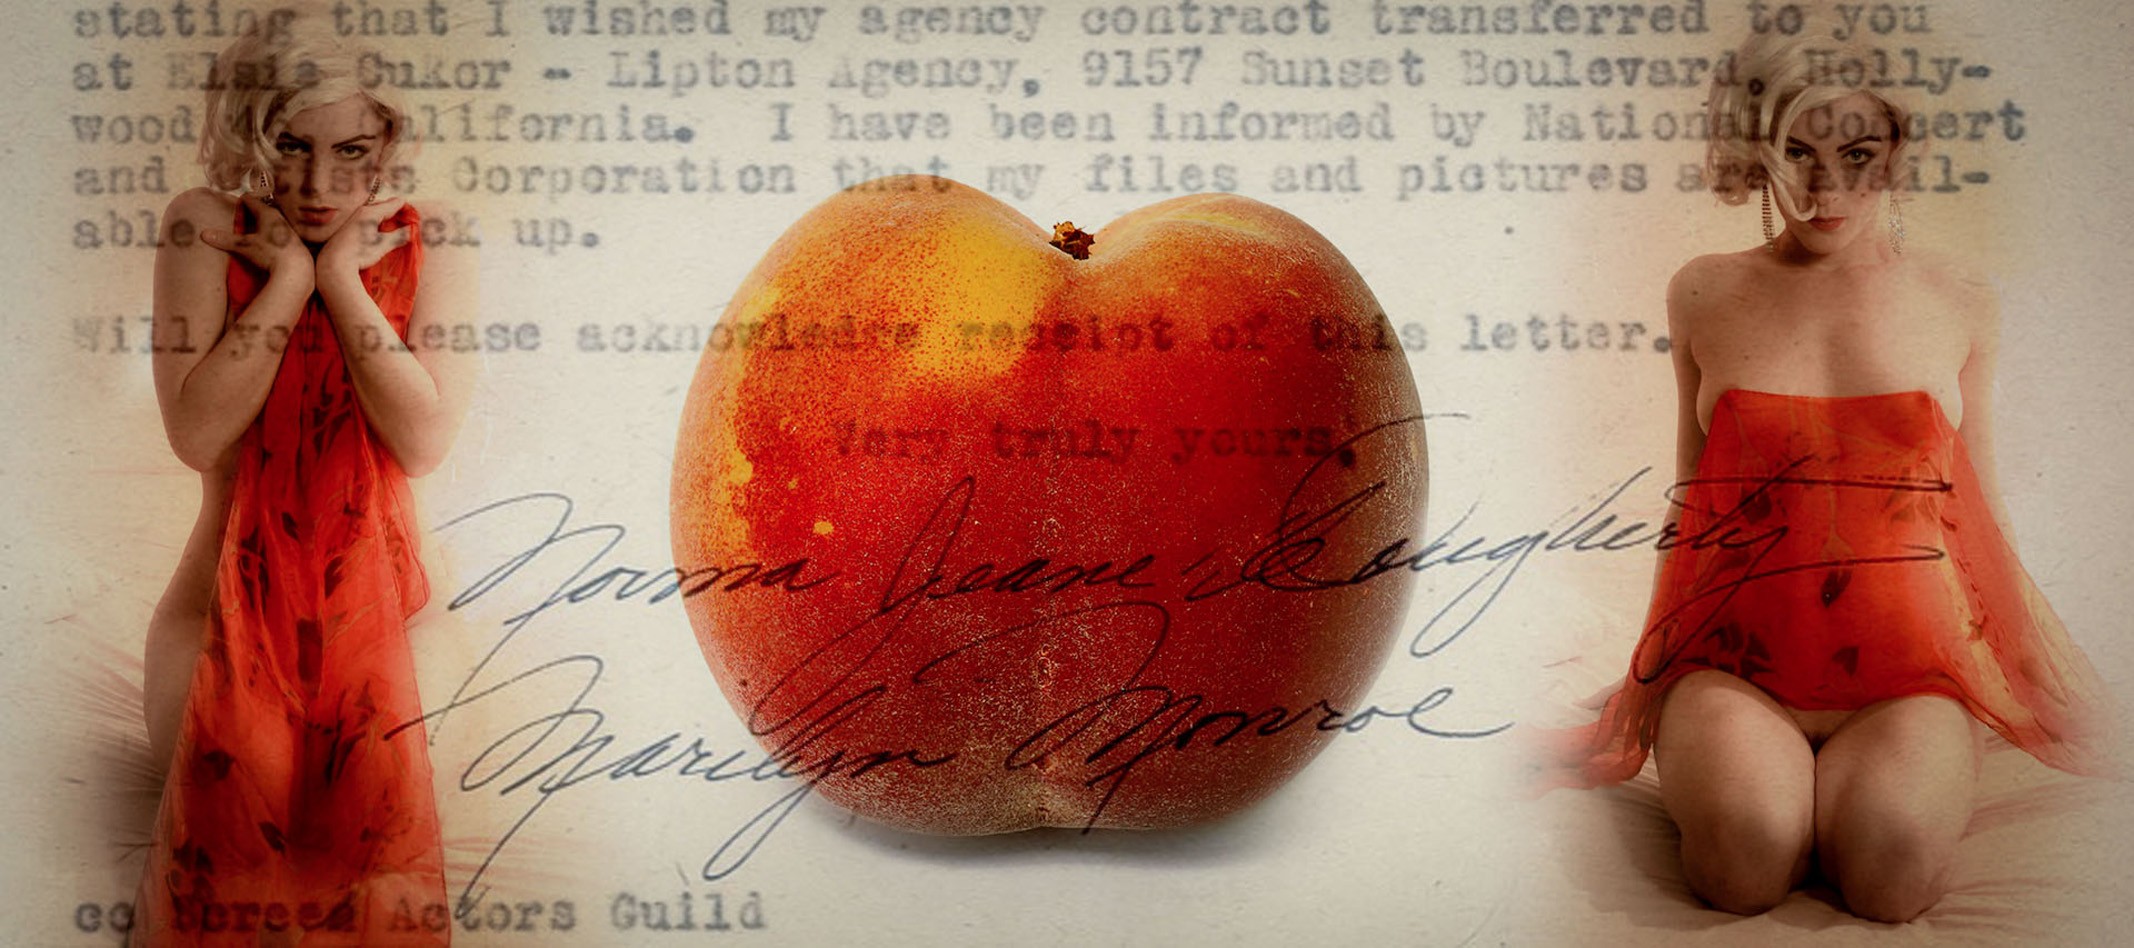 stating that I wished my agency contract transferred to you
at Elsie Cukor - Lipton Agency, 9157 Sunset Boulevard, Holly-
wood California. I have been informed by National Concert
and Artists Corporation that my files and pictures are avail-
able for pick up.
Will you please acknowledge receipt of this letter.
Very truly yours,
Norma Jeane Dougherty
Marilyn Monroe
cc Screen Actors Guild